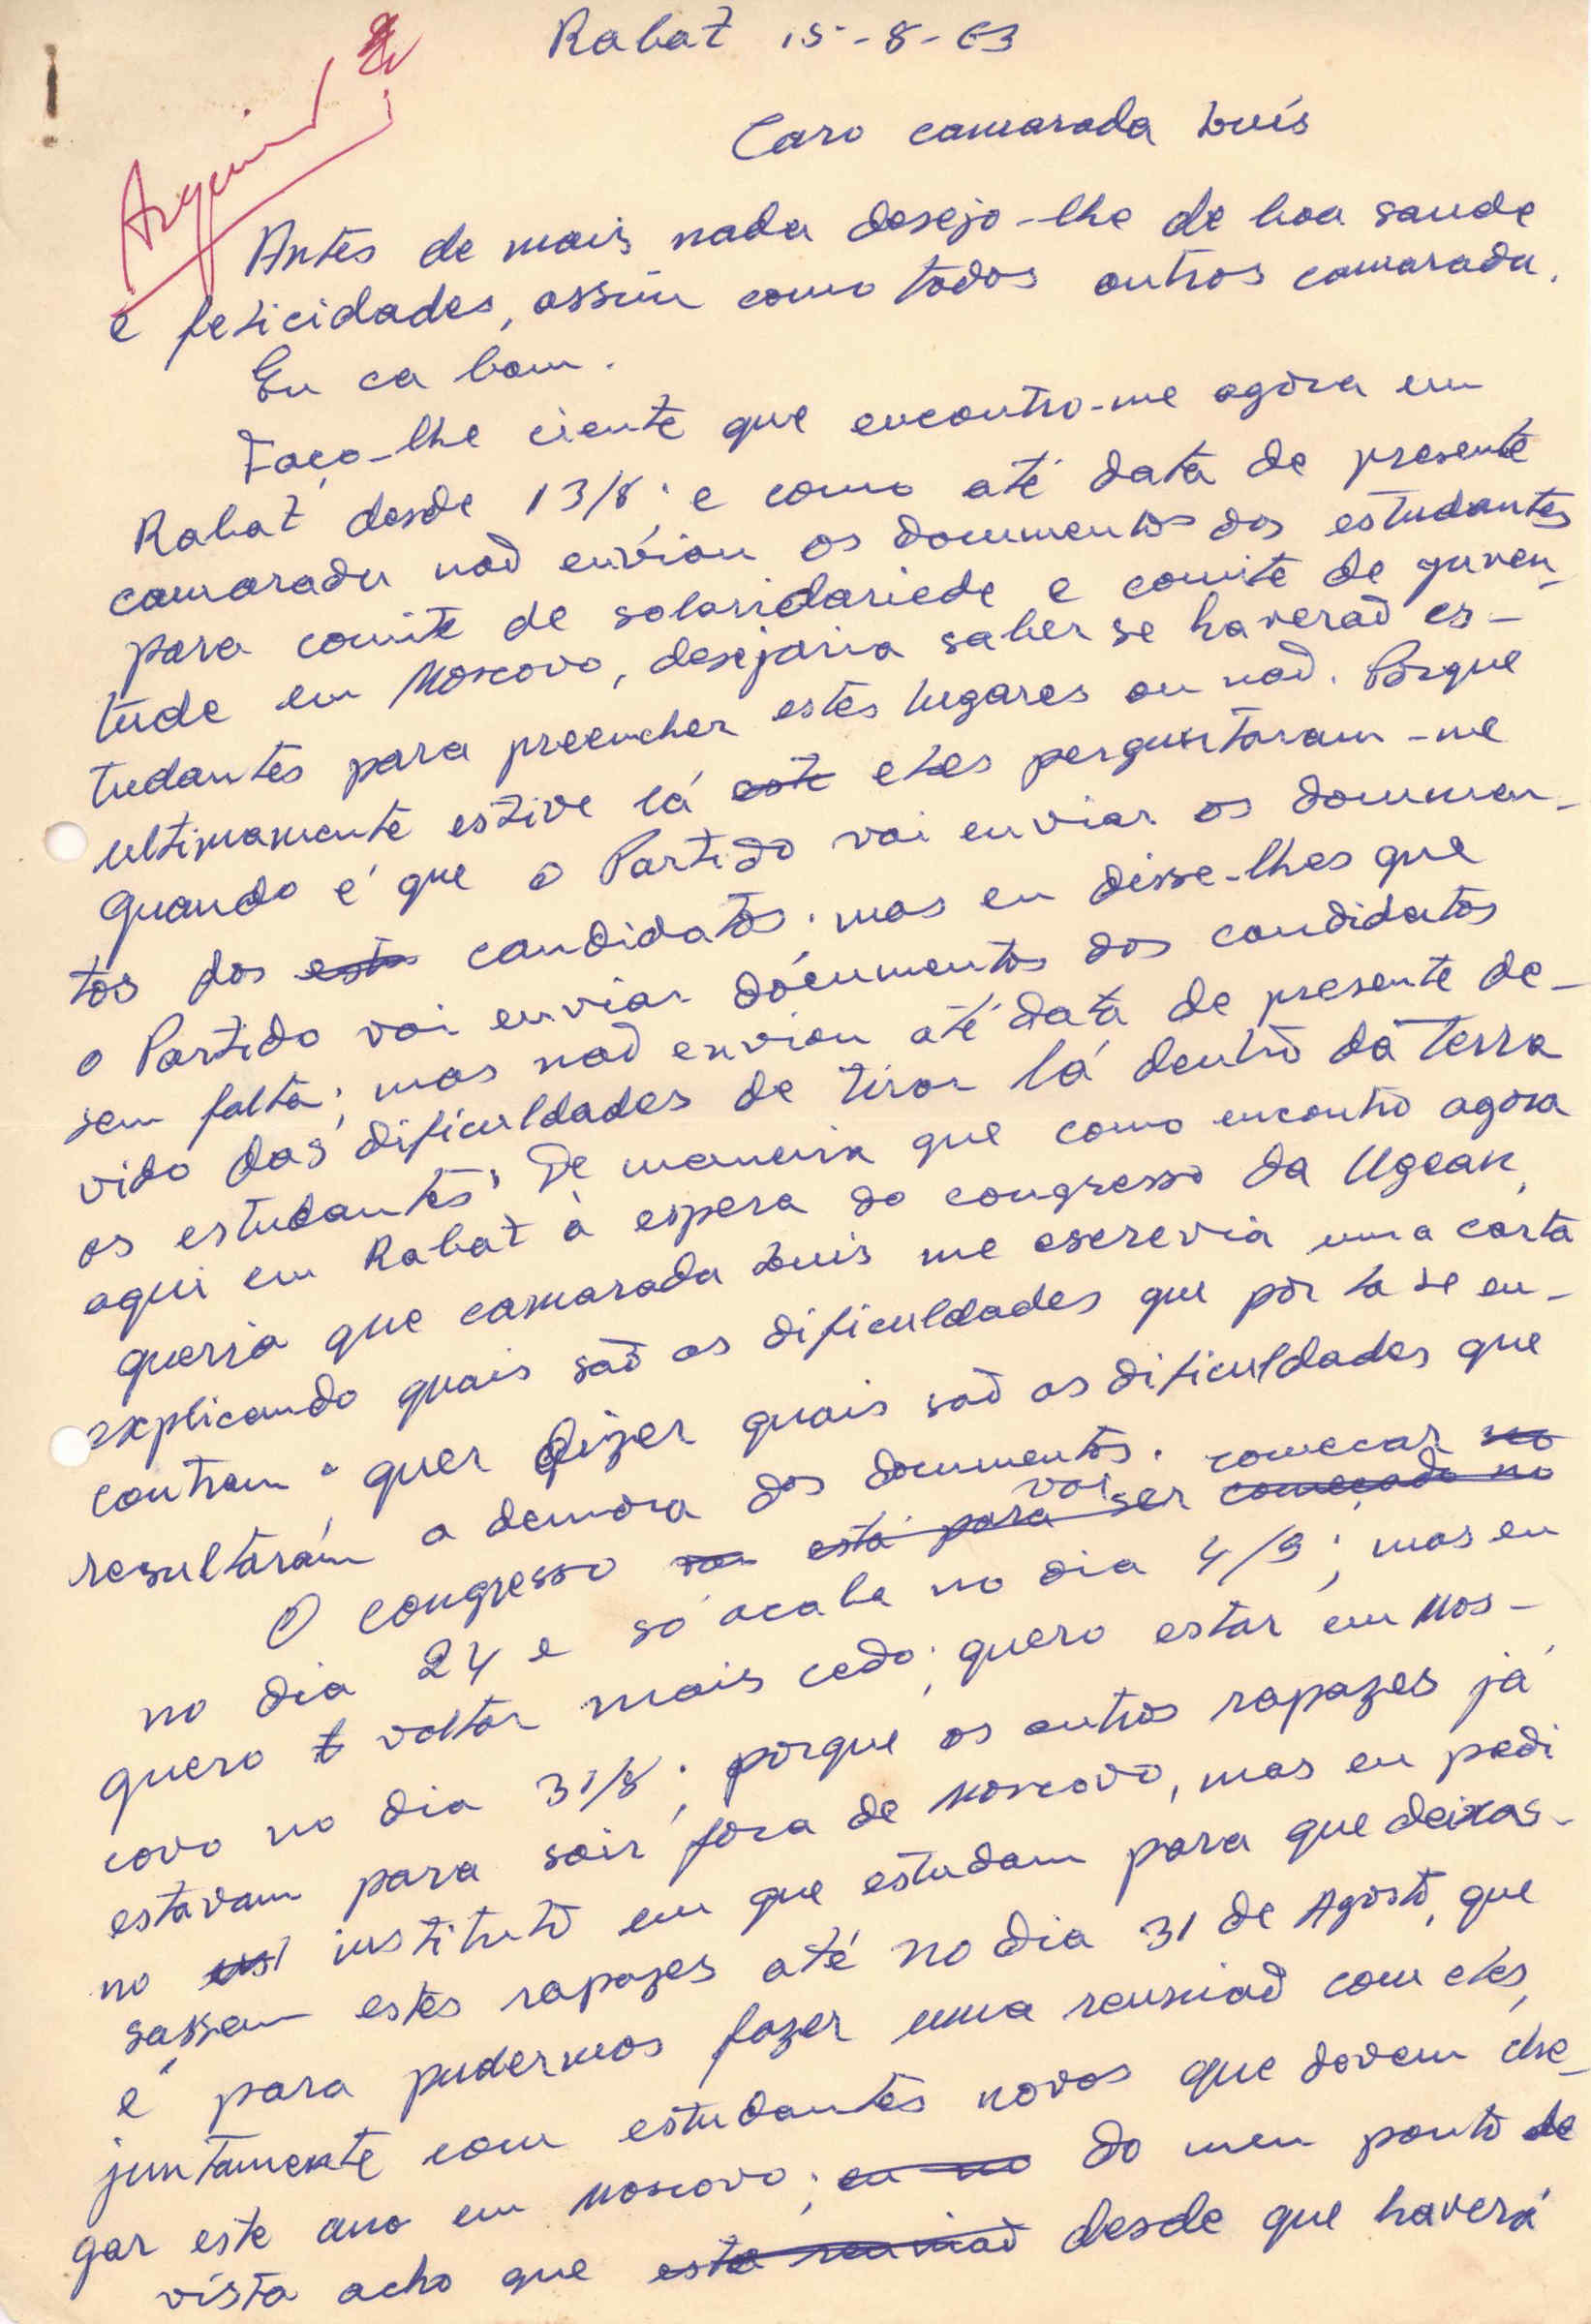 Rabat 15-8-63
Caro camarada Luís
Antes de mais nada desejo-lhe de boa saude
e felicidades, assim como todos outros camarada.
Eu ca bom.
Faço-lhe ciente que encontro-me agora em
Rabat desde 13/8; e como até data de presente
camarada naõ enviou os documentos dos estudantes
para comite de solaridariede e comite de juven-
tude em Moscovo, desejaria saber se haveraõ es-
tudantes para preemcher estes lugares ou naõ. Porque
ultimamente estive lá este eles perguntaram-me
quando é que o Partido vai enviar os documen-
tos dos estu candidatos; mas eu disse-lhes que
o Partido vai enviar documentos dos candidatos
sem falta; mas naõ enviou até data de presente de-
vido das dificuldades de tirar lá dentro da terra
os estudantes. De maneira que como encontro agora
aqui em Rabat à espera do congresso da Ugean,
queria que camarada Luis me escrevia uma carta
explicando quais saõ as dificuldades que por la se en-
contram. quer dizer quais saõ as dificuldades que
resultarám a demora dos documentos.
O congresso está para vai ser começado no começar no
no dia 24 e só acaba no dia 4/9; mas eu
quero t voltar mais cedo; quero estar em Mos-
covo no dia 31/8; porque os outros rapazes já
estavam para sair fora de Moscovo, mas eu pedi
no instituto em que estudam para que deixas-
sassem estes rapazes até no dia 31 de Agosto, que
é para pudermos fazer uma reuniaõ com eles,
juntamente com estudantes novos que devem che-
gar este ano em Moscovo; eu no do meu ponto de
vista acho que esta reuniaõ desde que haverá